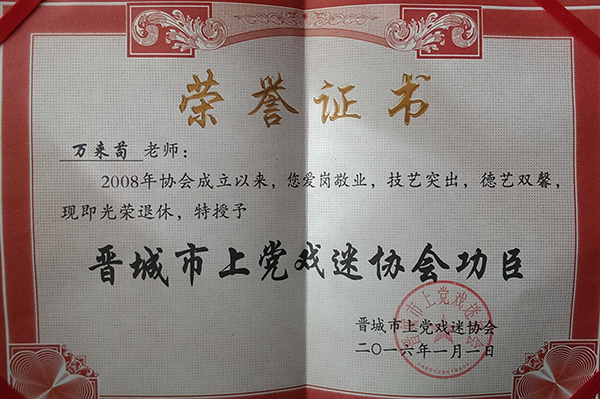 荣誉证书
万来苟 老师：
2008年协会成立以来，您爱岗敬业，技艺突出，德艺双馨，
现即光荣退休，特授予
晋城市上党戏迷协会功臣
晋城市上党戏迷协会
二〇一六年一月一日
晋城市上党戏迷协会